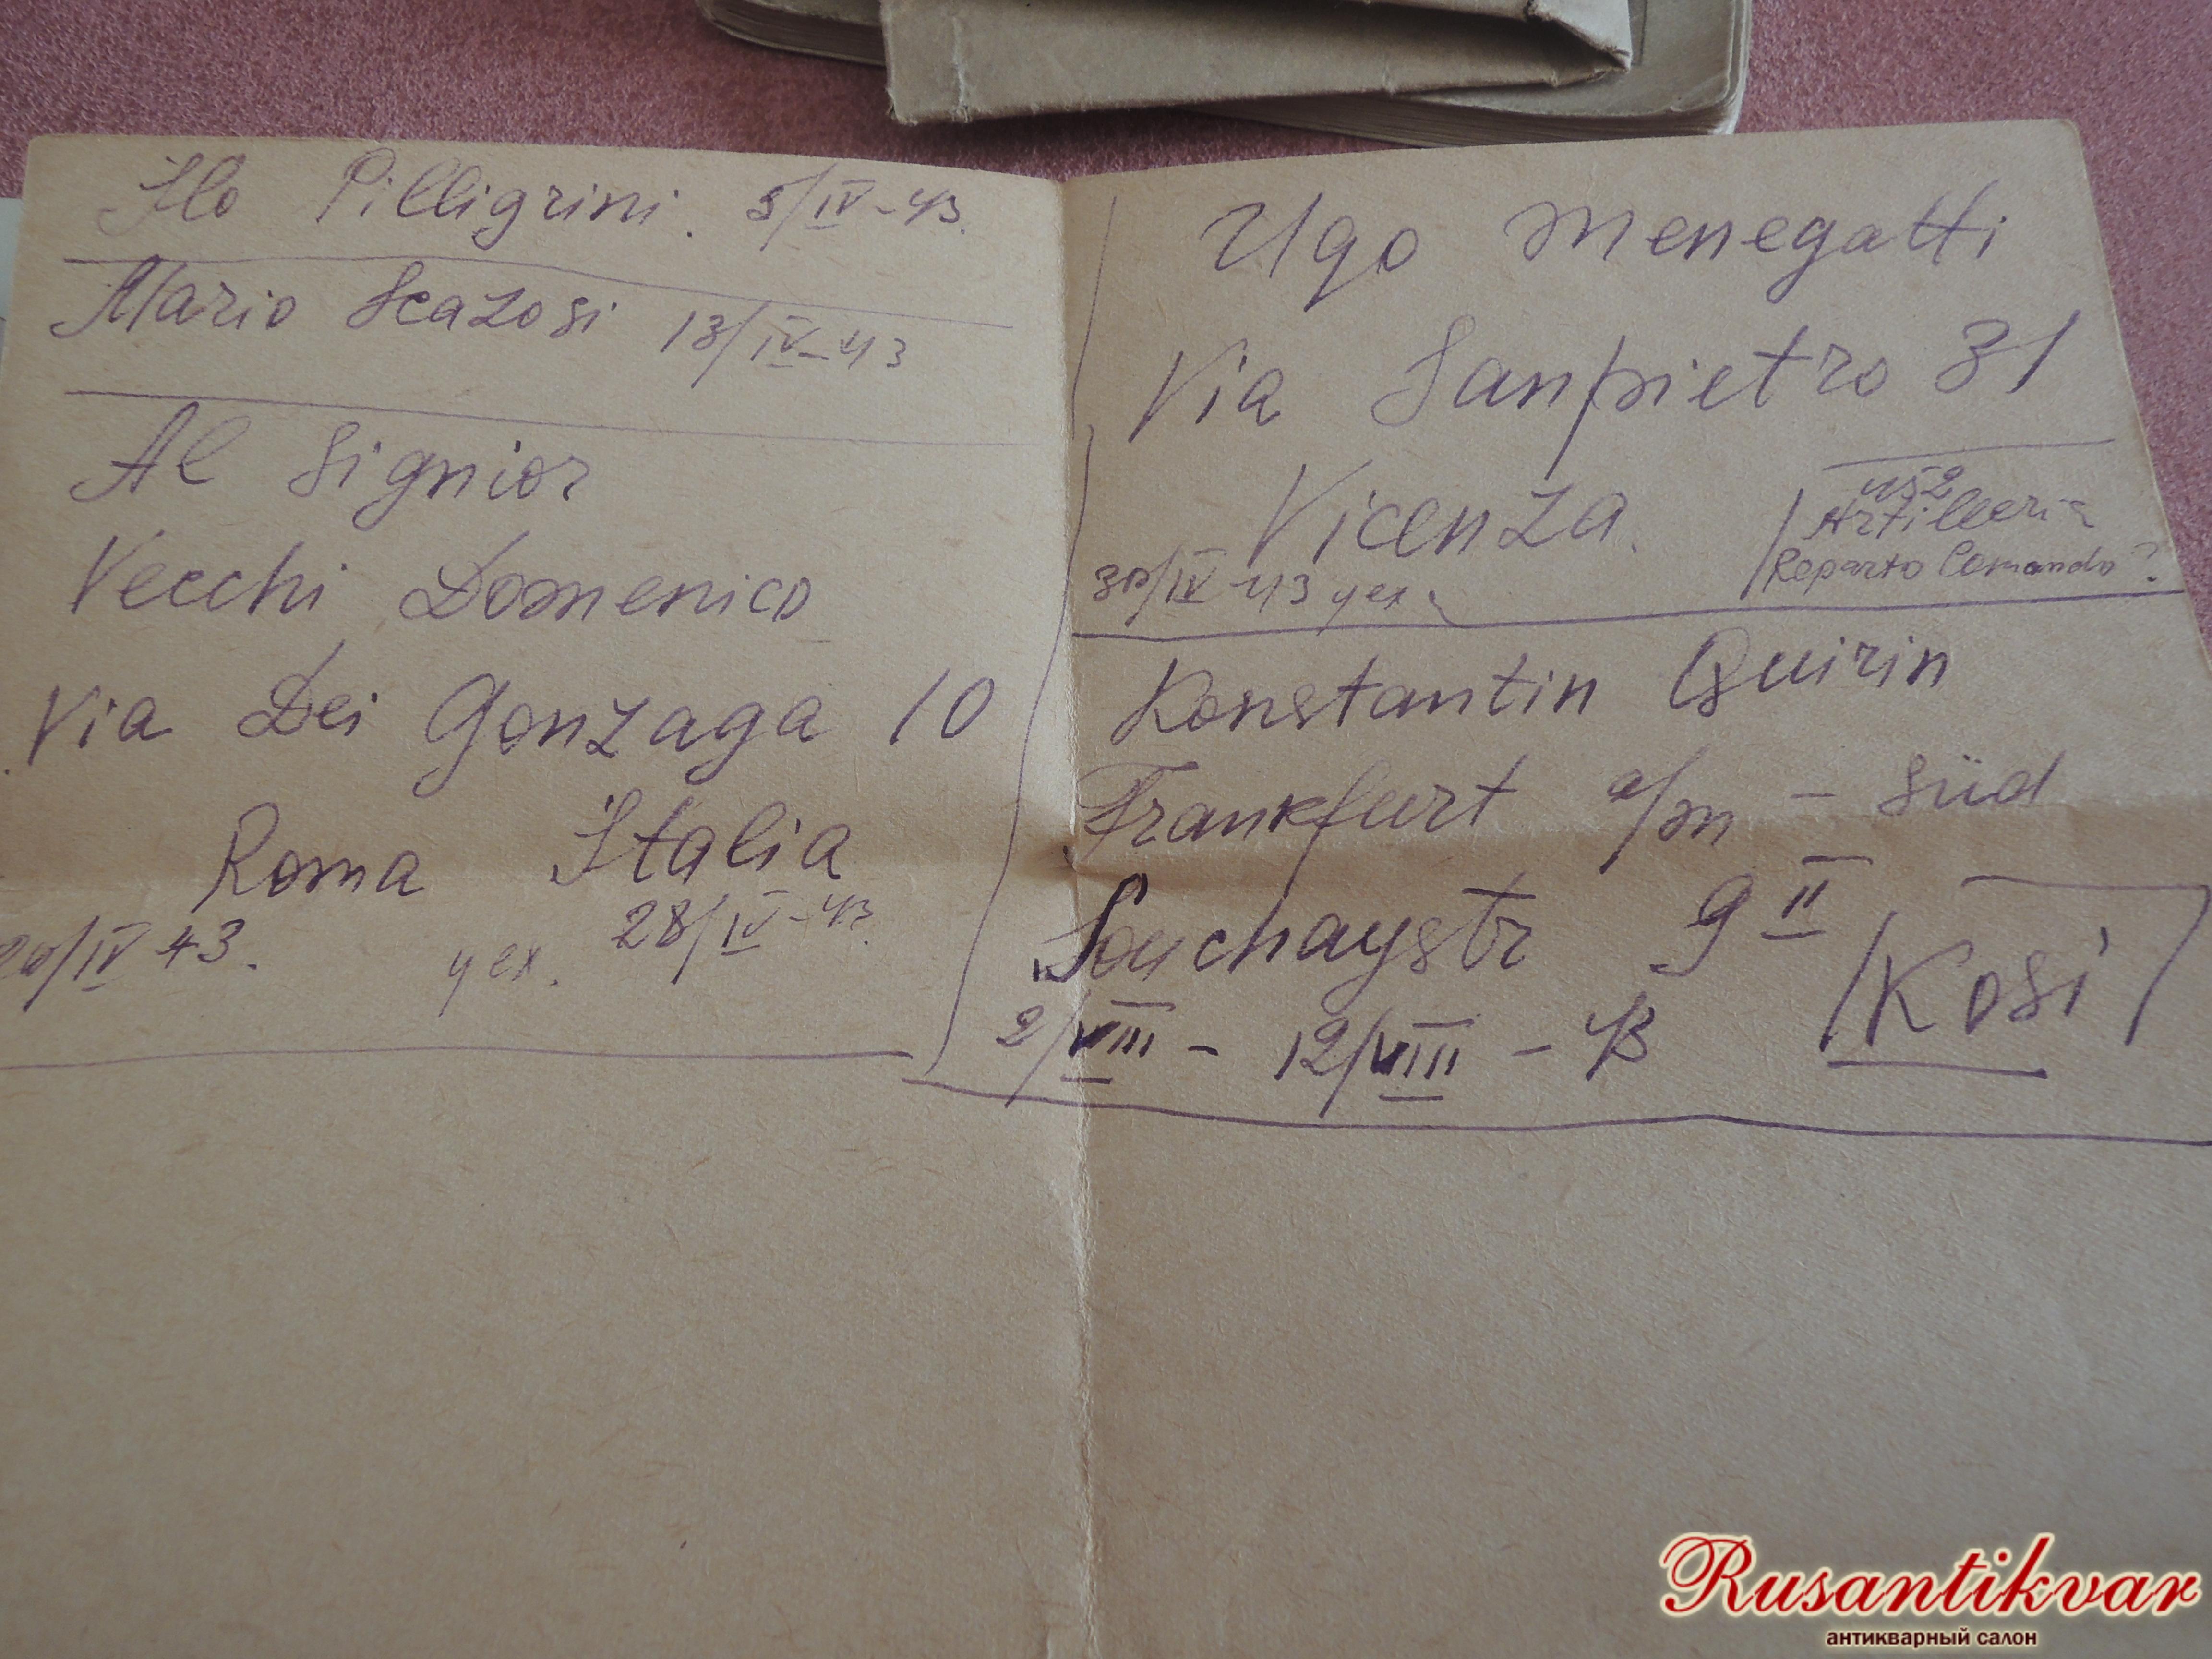 Ilo Pilligrini. 5/IV-43.
Mario Scazosi 13/IV-43
Al Signior
Vecchi Domenico
Via Dei Gonzaga 10
Roma Italia
20/IV 43. уех. 28/IV-43.
Ugo Menegatti
Via Sanpietro 31
Vicenza.
52
Artilleria
Reparto Comando?
30/IV-43 уех.
Konstantin Quirin
Frankfurt a/m - Süd
Souchaystr 9 II
2/VIII - 12/VIII - 43
/Kosi/
Rusantikvar
антикварный салон